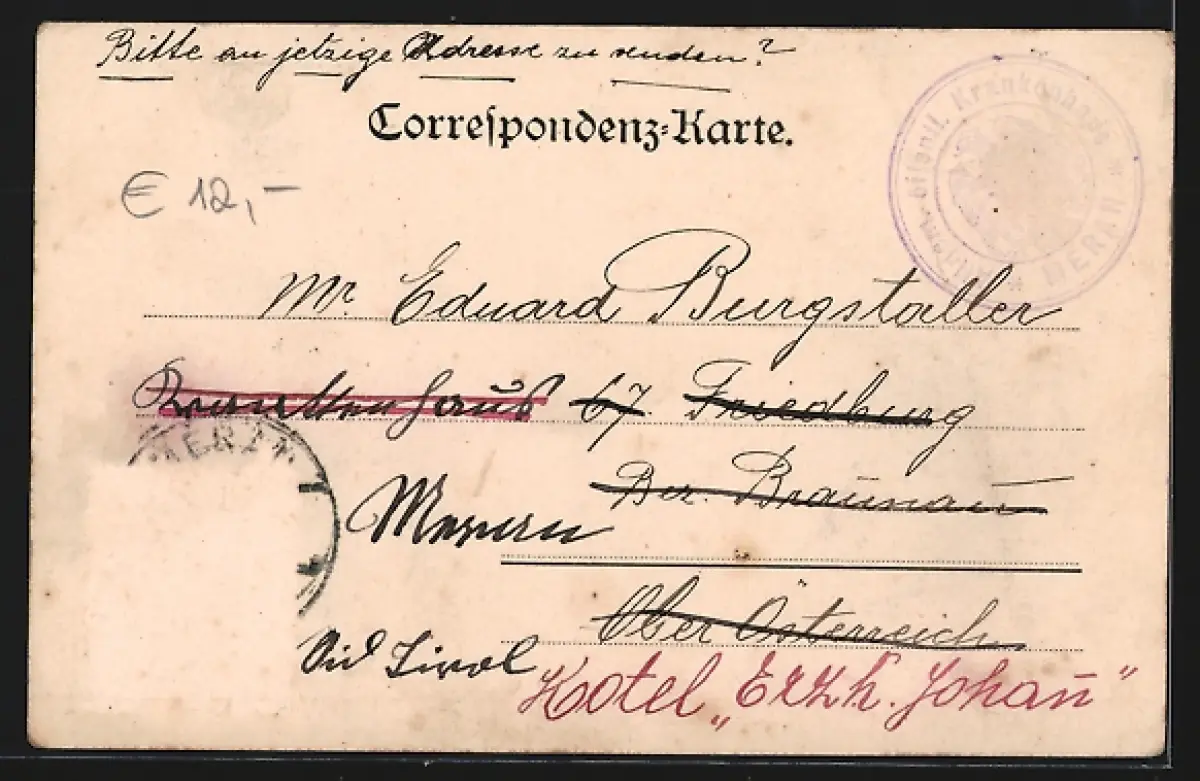 Bitte an jetzige Adresse zu senden?
Correſpondenz-Karte.
€ 12,-
Krankenhaus * MERAN *
Mr. Eduard Burgstaller
Krankenhaus 67. Friedburg
Bez. Braunau
Meran
Ober Österreich
Süd Tirol
Hotel „Erzh. Johann"
MERAN